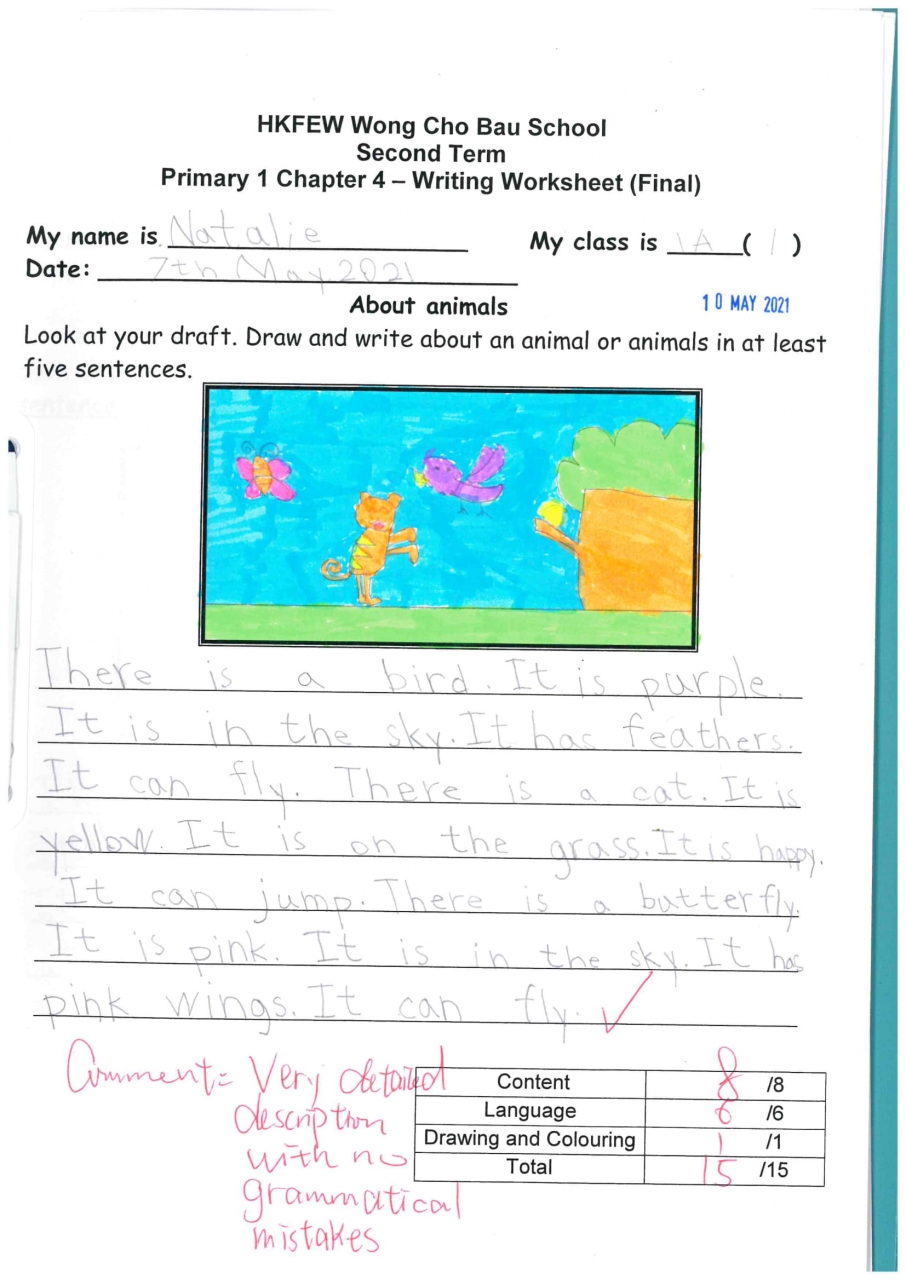 HKFEW Wong Cho Bau School
Second Term
Primary 1 Chapter 4 – Writing Worksheet (Final)
My name is Natalie My class is 1A ( 1 )
Date: 7th May 2021
About animals 10 MAY 2021
Look at your draft. Draw and write about an animal or animals in at least
five sentences.
There is a bird. It is purple.
It is in the sky. It has feathers.
It can fly. There is a cat. It is
yellow. It is on the grass. It is happy.
It can jump. There is a butterfly.
It is pink. It is in the sky. It has
pink wings. It can fly.
Comment: Very detailed
description
with no
grammatical
mistakes
Content 8 /8
Language 6 /6
Drawing and Colouring 1 /1
Total 15 /15